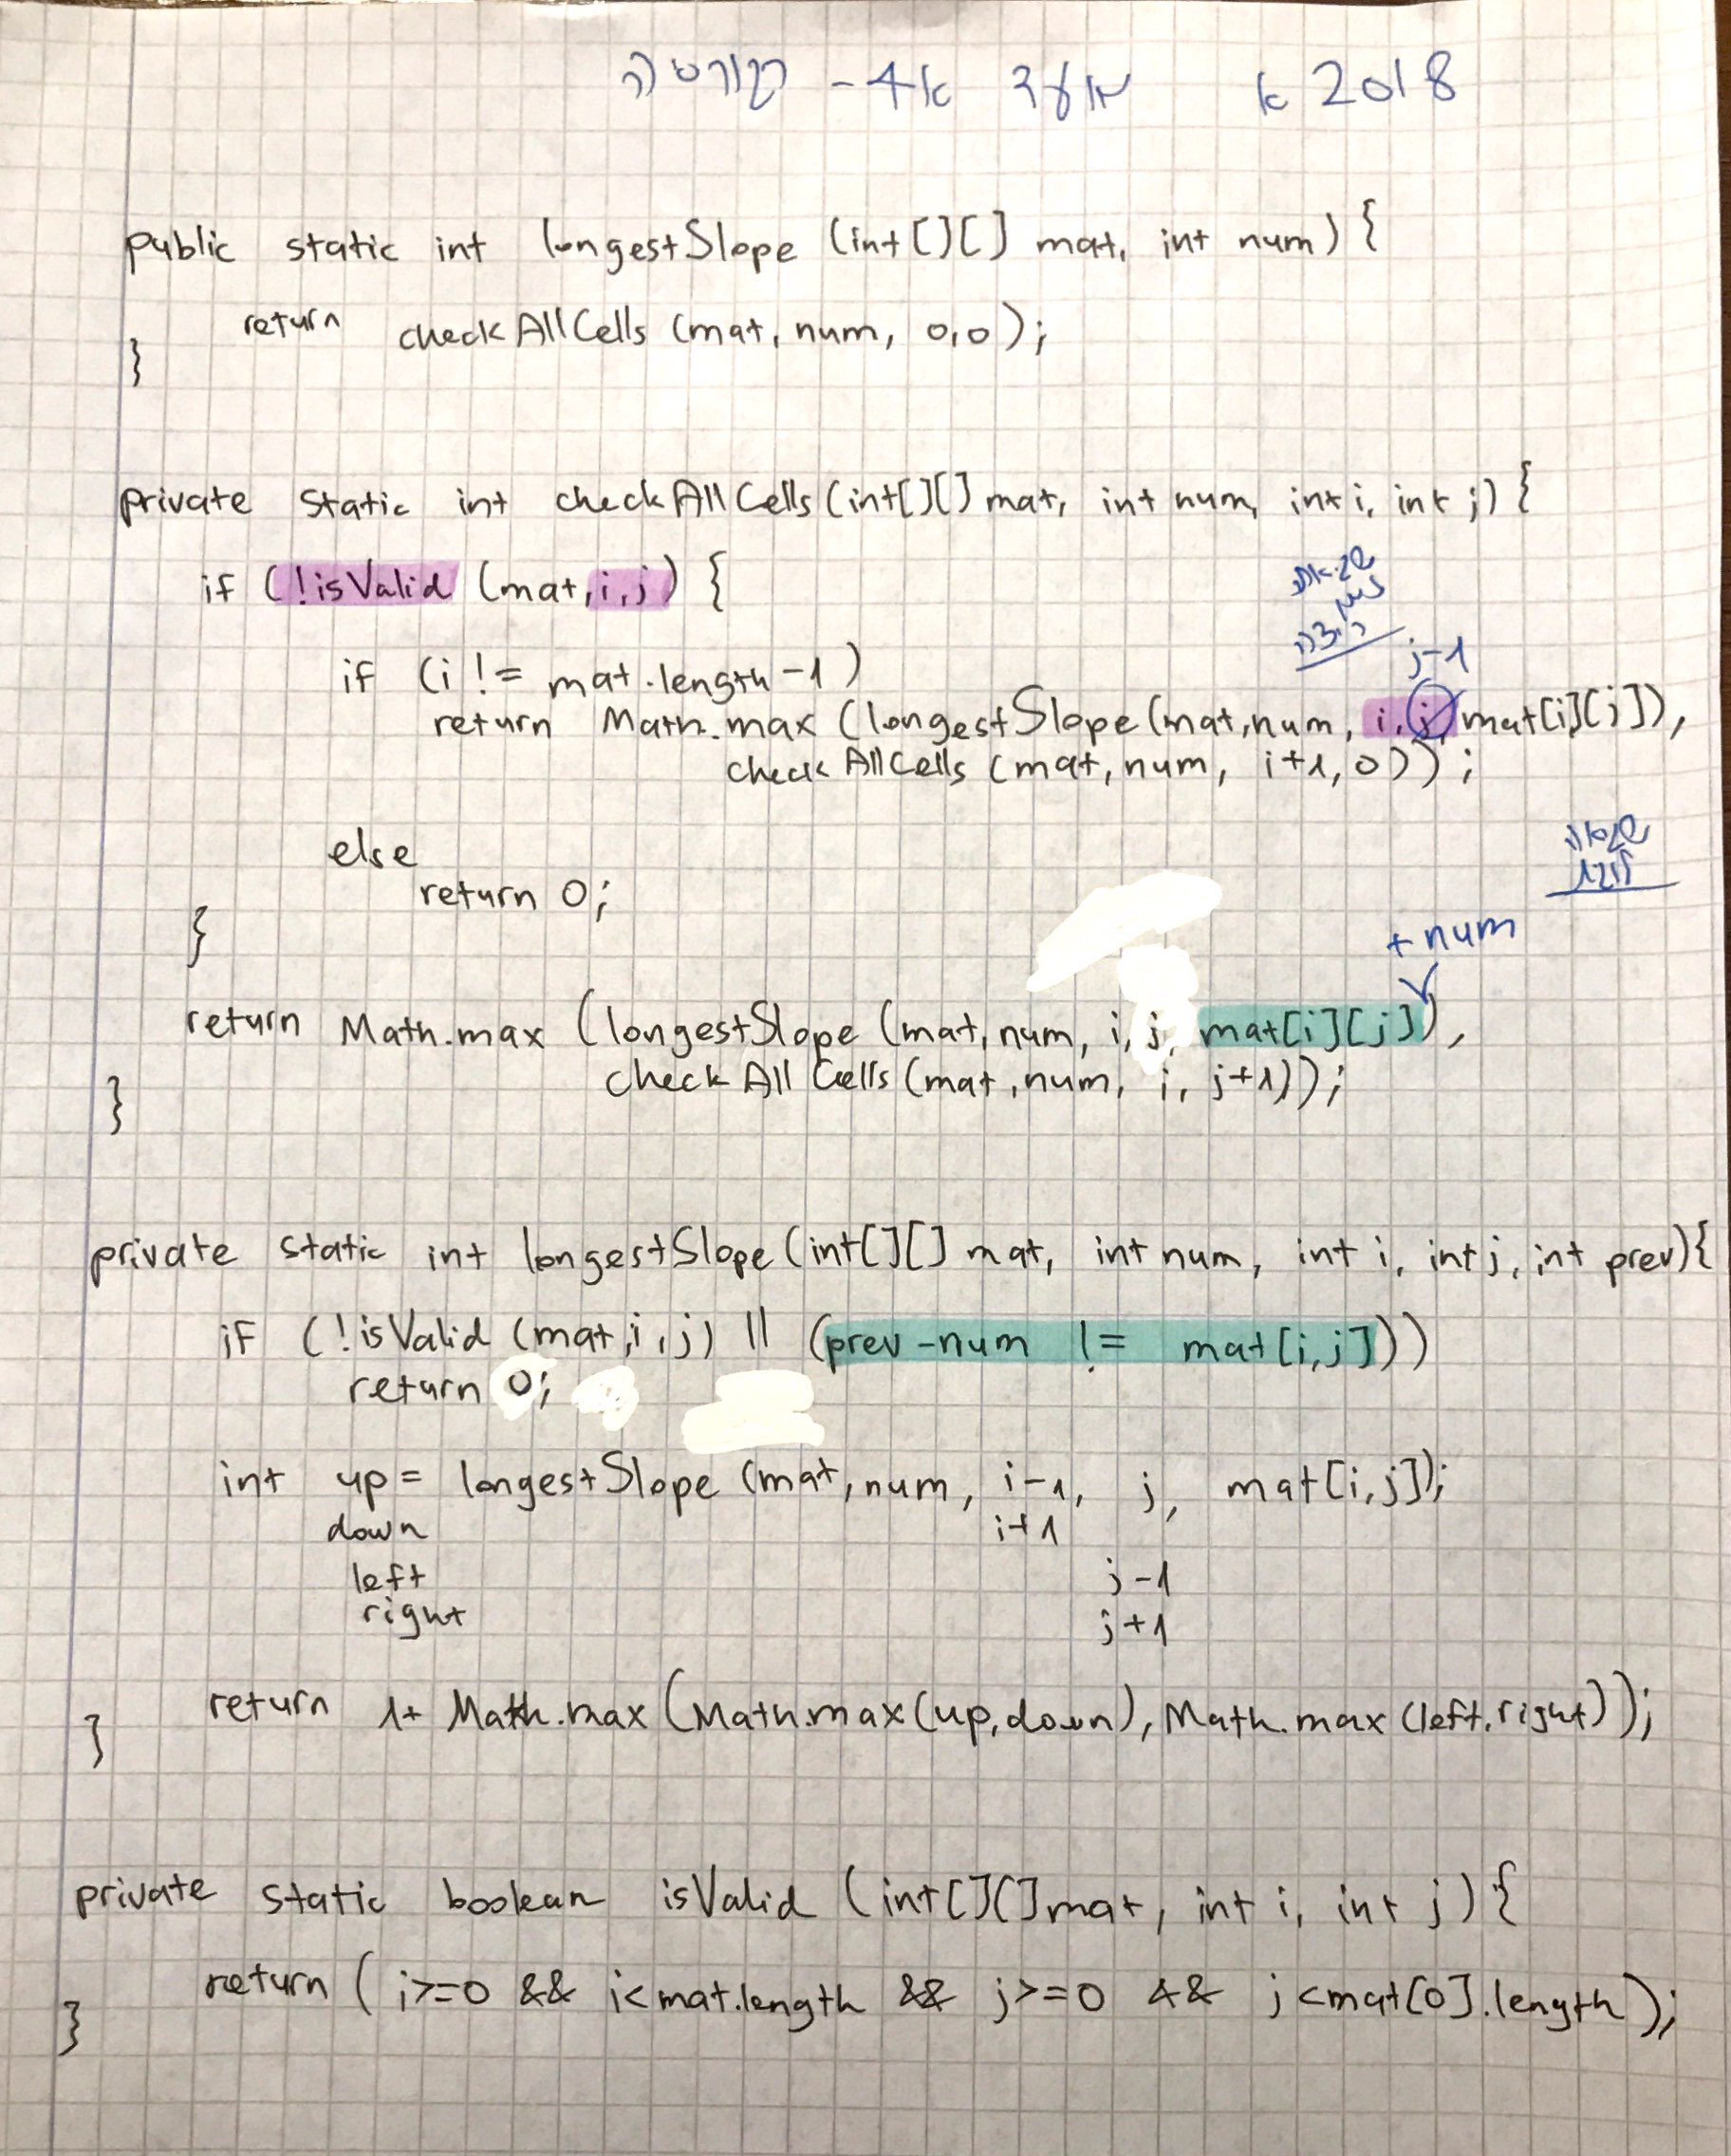 2018 א מועד א4 - רקורסיה
public static int longestSlope (int[][] mat, int num) {
return checkAllCells (mat, num, 0,0);
}
private static int checkAllCells (int[][] mat, int num, int i, int j) {
if (!isValid (mat, i, j) {
if (i != mat.length-1)
j-1
return Math.max (longestSlope (mat, num, i, j, mat[i][j]),
checkAllCells (mat, num, i+1, 0));
else
return 0;
}
+ num
return Math.max (longestSlope (mat, num, i, j, mat[i][j]),
checkAllCells (mat, num, i, j+1));
}
private static int longestSlope (int[][] mat, int num, int i, int j, int prev) {
if (!isValid (mat, i, j) || (prev - num != mat[i,j]))
return 0;
int up = longestSlope (mat, num, i-1, j, mat[i,j]);
down i+1
left j-1
right j+1
return 1+ Math.max (Math.max (up, down), Math.max (left, right));
}
private static boolean isValid (int[][] mat, int i, int j) {
return (i>=0 && i<mat.length && j>=0 && j<mat[0].length);
}